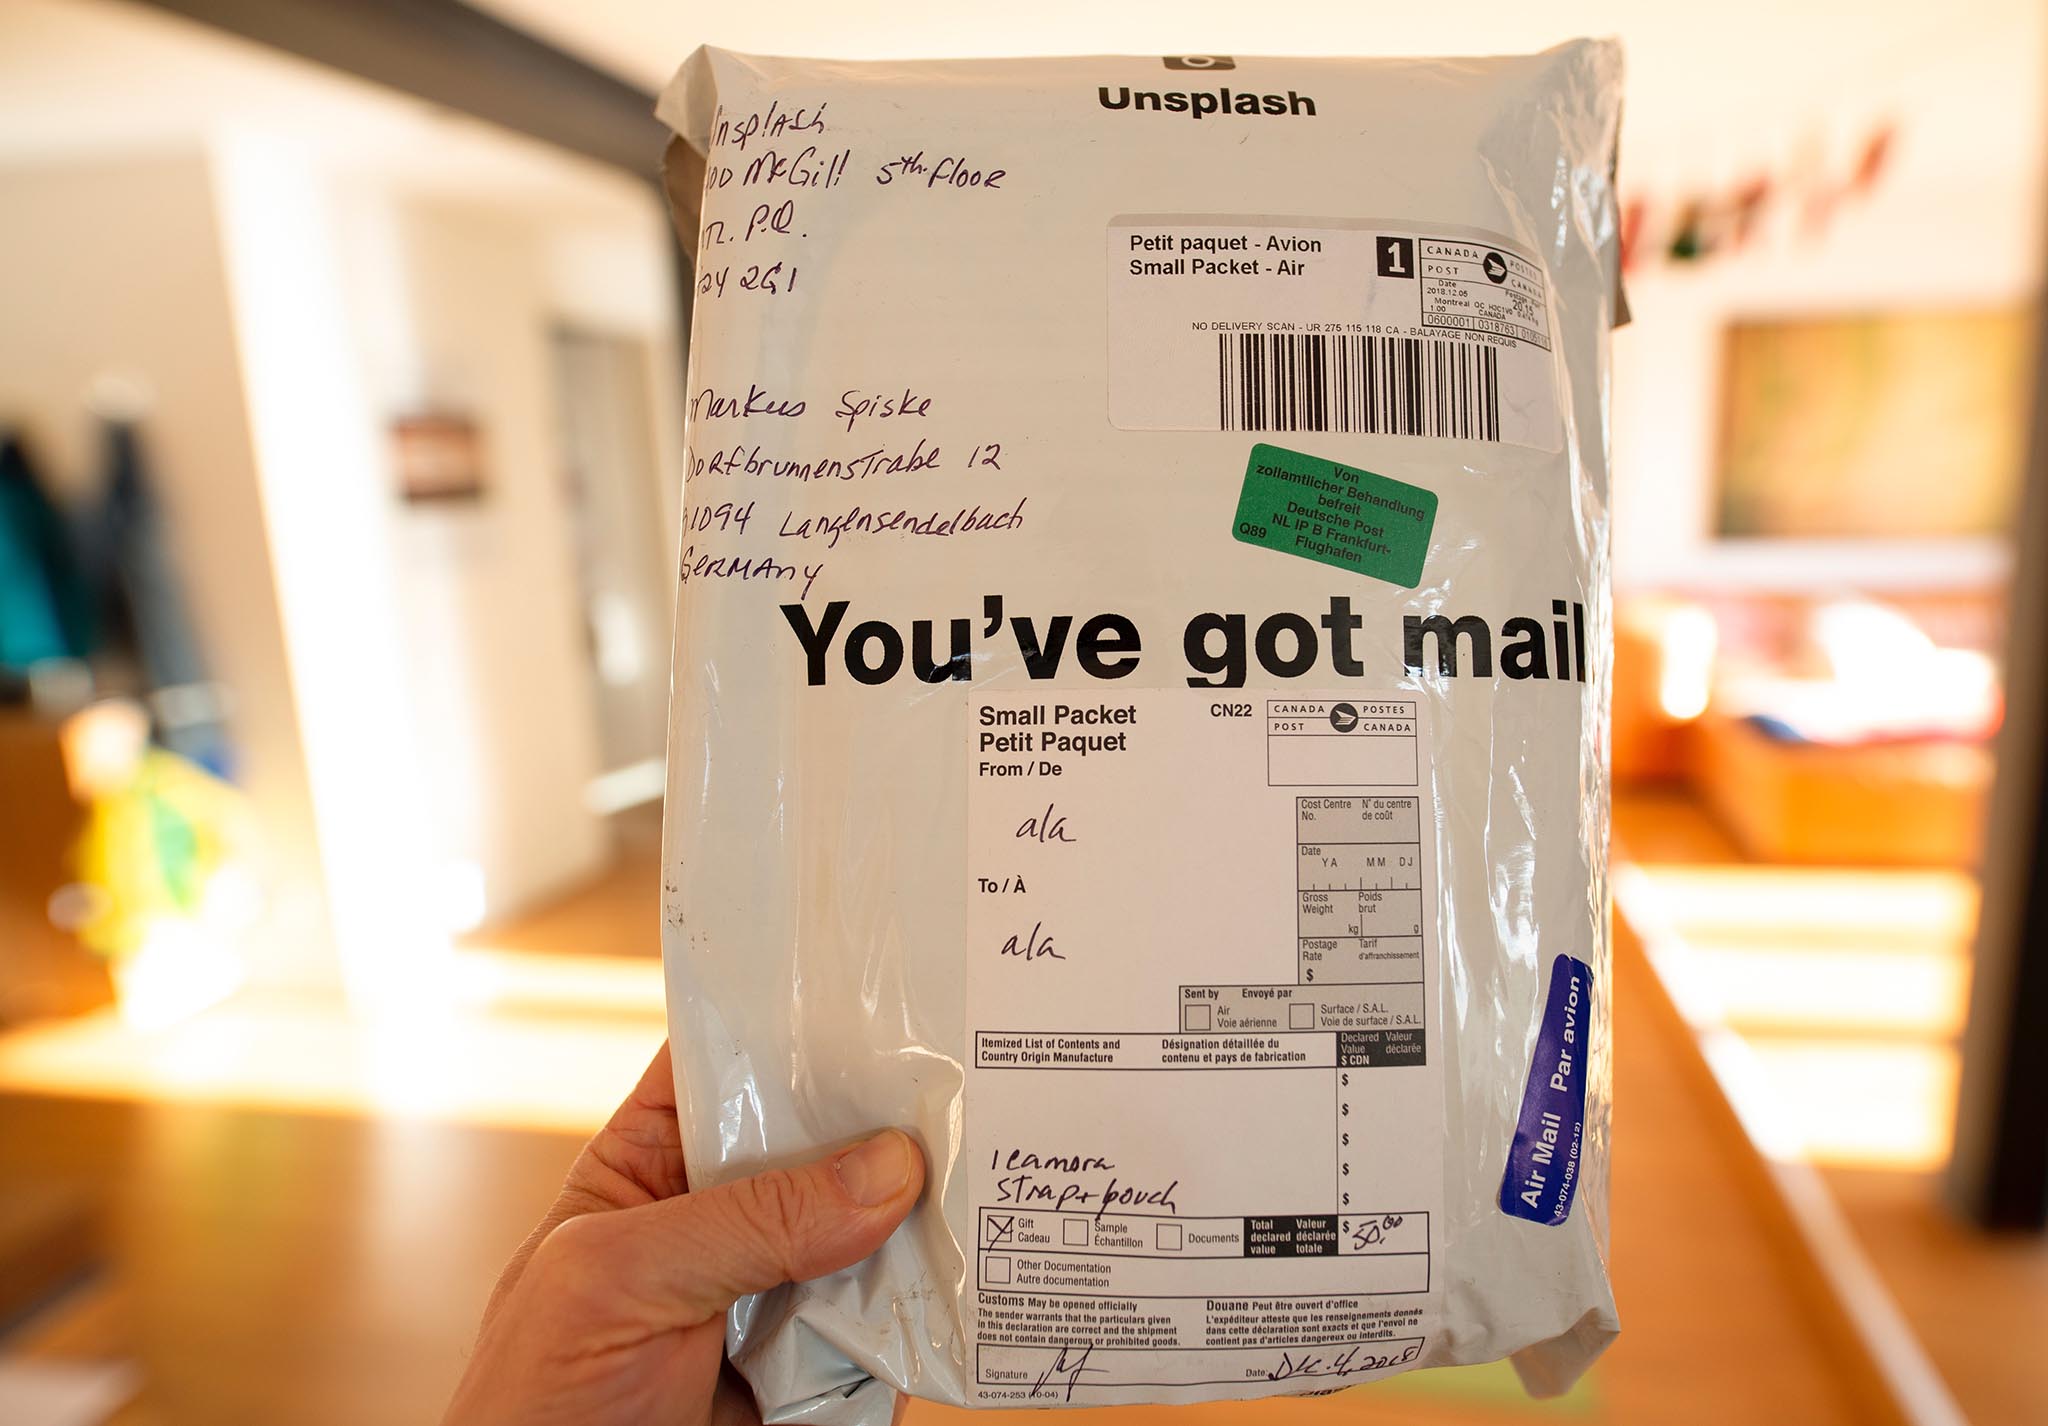 Unsplash
nsplash
00 McGill 5th floor
TL. P.Q.
2Y 2G1
Petit paquet - Avion
Small Packet - Air
1
CANADA POSTES
POST CANADA
Date
2018.12.05
Montreal QC
1.00
CANADA
20.15
0600001 0318763
NO DELIVERY SCAN - UR 275 115 118 CA - BALAYAGE NON REQUIS
Markus Spiske
Dorfbrunnenstraße 12
1094 Langensendelbach
Germany
Von
zollamtlicher Behandlung
befreit
Deutsche Post
NL IP B Frankfurt-
Q89 Flughafen
You've got mail
Small Packet
Petit Paquet
CN22
CANADA POSTES
POST CANADA
From / De
ala
To / À
ala
Cost Centre N° du centre
No. de coût
Date
YA MM DJ
Gross Poids
Weight brut
kg g
Postage Tarif
Rate d'affranchissement
$
Sent by Envoyé par
Air Surface / S.A.L.
Voie aérienne Voie de surface / S.A.L.
Itemized List of Contents and Désignation détaillée du
Country Origin Manufacture contenu et pays de fabrication
Declared Valeur
Value déclarée
$ CDN
$
$
$
$
$
1 camora
strap + pouch
Gift Sample
Cadeau Échantillon Documents
Total Valeur
declared déclarée
value totale
$ 50.00
Other Documentation
Autre documentation
Customs May be opened officially
The sender warrants that the particulars given
in this declaration are correct and the shipment
does not contain dangerous or prohibited goods.
Douane Peut être ouvert d'office
L'expéditeur atteste que les renseignements donnés
dans cette déclaration sont exacts et que l'envoi ne
contient pas d'articles dangereux ou interdits.
Signature Date Dec. 4, 2018
43-074-253 (10-04)
Air Mail Par avion
43-074-038 (02-12)